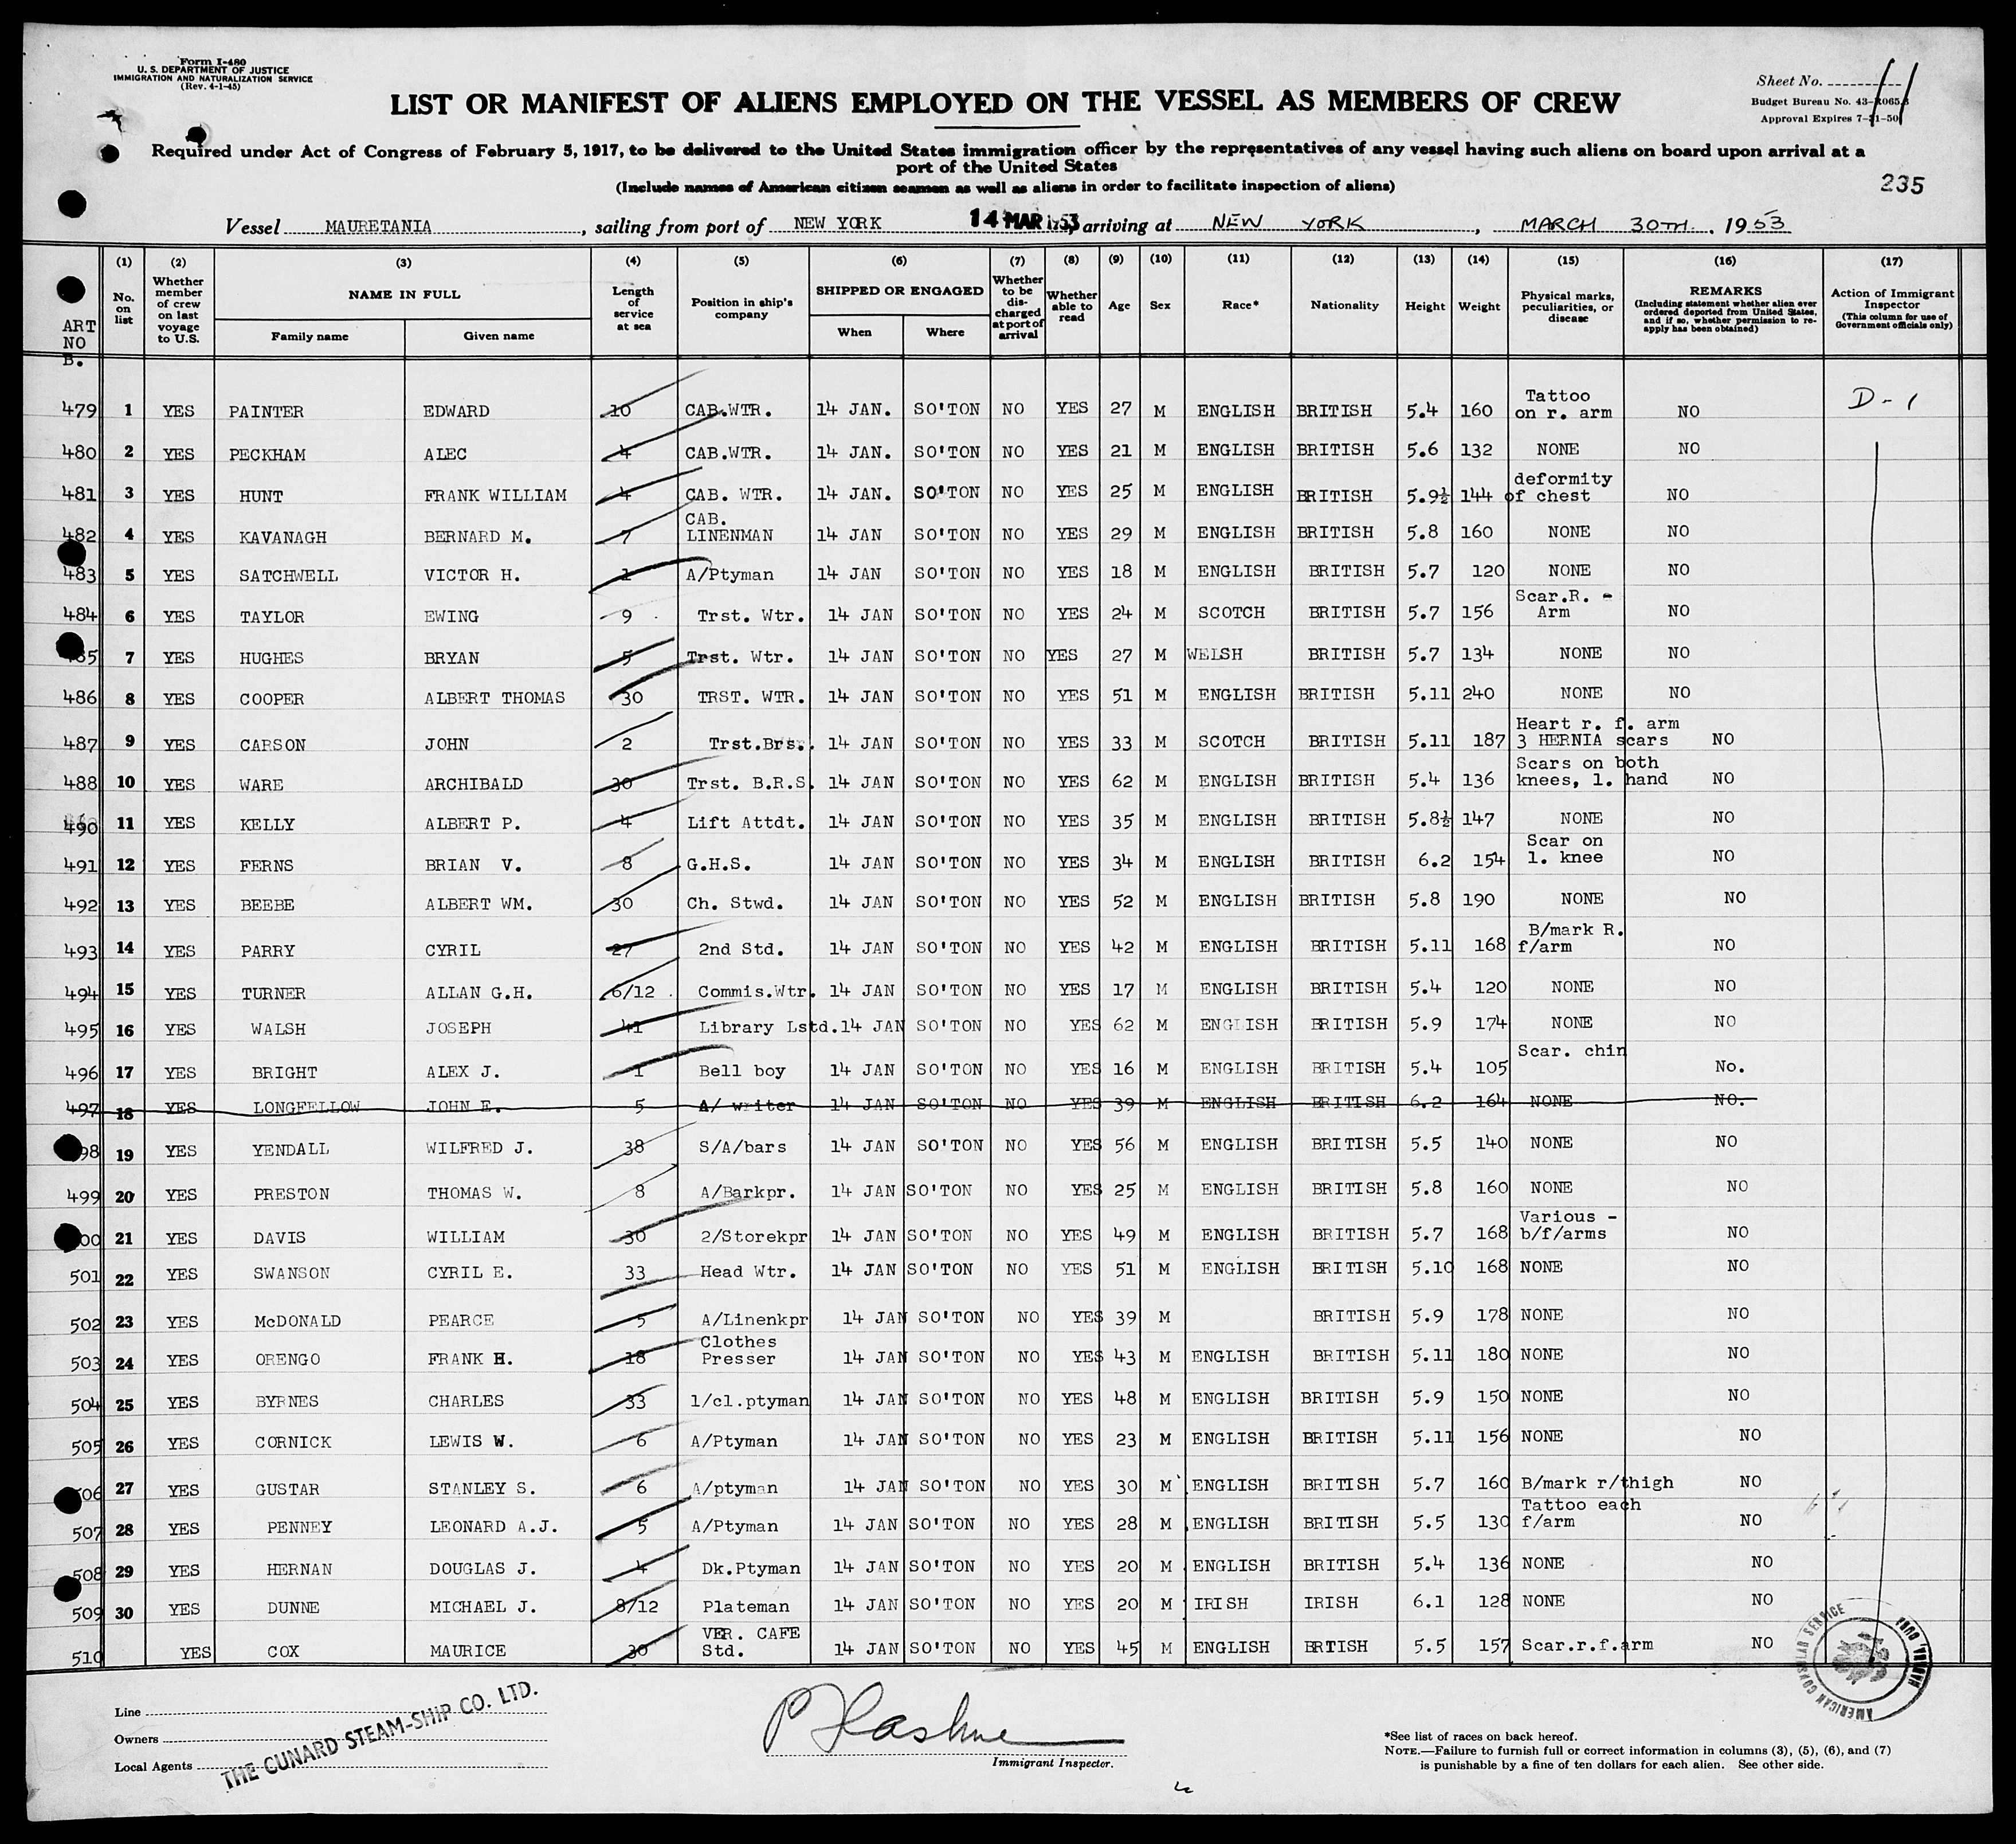 Form I-480
U. S. DEPARTMENT OF JUSTICE
IMMIGRATION AND NATURALIZATION SERVICE
(Rev. 4-1-45)
Sheet No. 11
Budget Bureau No. 43-R065.3
Approval Expires 7-31-50
LIST OR MANIFEST OF ALIENS EMPLOYED ON THE VESSEL AS MEMBERS OF CREW
Required under Act of Congress of February 5, 1917, to be delivered to the United States immigration officer by the representatives of any vessel having such aliens on board upon arrival at a
port of the United States
(Include names of American citizen seamen as well as aliens in order to facilitate inspection of aliens)
235
Vessel MAURETANIA, sailing from port of NEW YORK 14 MAR 1953, arriving at NEW YORK, MARCH 30TH. 1953
ART NO B.
(1) No. on list
(2) Whether member of crew on last voyage to U.S.
(3) NAME IN FULL Family name Given name
(4) Length of service at sea
(5) Position in ship's company
(6) SHIPPED OR ENGAGED When Where
(7) Whether to be discharged at port of arrival
(8) Whether able to read
(9) Age
(10) Sex
(11) Race*
(12) Nationality
(13) Height
(14) Weight
(15) Physical marks, peculiarities, or disease
(16) REMARKS (Including statement whether alien ever ordered deported from United States, and if so, whether permission to reapply has been obtained)
(17) Action of Immigrant Inspector (This column for use of Government officials only)
479 1 YES PAINTER EDWARD 10 CAB.WTR. 14 JAN. SO'TON NO YES 27 M ENGLISH BRITISH 5.4 160 Tattoo on r. arm NO D-1
480 2 YES PECKHAM ALEC 4 CAB.WTR. 14 JAN. SO'TON NO YES 21 M ENGLISH BRITISH 5.6 132 NONE NO
481 3 YES HUNT FRANK WILLIAM 4 CAB. WTR. 14 JAN. SO'TON NO YES 25 M ENGLISH BRITISH 5.9½ 144 deformity of chest NO
482 4 YES KAVANAGH BERNARD M. 7 CAB. LINENMAN 14 JAN SO'TON NO YES 29 M ENGLISH BRITISH 5.8 160 NONE NO
483 5 YES SATCHWELL VICTOR H. 1 A/Ptyman 14 JAN SO'TON NO YES 18 M ENGLISH BRITISH 5.7 120 NONE NO
484 6 YES TAYLOR EWING 9 Trst. Wtr. 14 JAN SO'TON NO YES 24 M SCOTCH BRITISH 5.7 156 Scar.R. - Arm NO
85 7 YES HUGHES BRYAN 5 Trst. Wtr. 14 JAN SO'TON NO YES 27 M WELSH BRITISH 5.7 134 NONE NO
486 8 YES COOPER ALBERT THOMAS 30 TRST. WTR. 14 JAN SO'TON NO YES 51 M ENGLISH BRITISH 5.11 240 NONE NO
487 9 YES CARSON JOHN 2 Trst.Brs. 14 JAN SO'TON NO YES 33 M SCOTCH BRITISH 5.11 187 Heart r. f. arm 3 HERNIA scars NO
488 10 YES WARE ARCHIBALD 30 Trst. B.R.S. 14 JAN SO'TON NO YES 62 M ENGLISH BRITISH 5.4 136 Scars on both knees, l. hand NO
490 11 YES KELLY ALBERT P. 4 Lift Attdt. 14 JAN SO'TON NO YES 35 M ENGLISH BRITISH 5.8½ 147 NONE NO
491 12 YES FERNS BRIAN V. 8 G.H.S. 14 JAN SO'TON NO YES 34 M ENGLISH BRITISH 6.2 154 Scar on l. knee NO
492 13 YES BEEBE ALBERT WM. 30 Ch. Stwd. 14 JAN SO'TON NO YES 52 M ENGLISH BRITISH 5.8 190 NONE NO
493 14 YES PARRY CYRIL 27 2nd Std. 14 JAN SO'TON NO YES 42 M ENGLISH BRITISH 5.11 168 B/mark R. f/arm NO
494 15 YES TURNER ALLAN G.H. 6/12 Commis.Wtr. 14 JAN SO'TON NO YES 17 M ENGLISH BRITISH 5.4 120 NONE NO
495 16 YES WALSH JOSEPH 41 Library Lstd. 14 JAN SO'TON NO YES 62 M ENGLISH BRITISH 5.9 174 NONE NO
496 17 YES BRIGHT ALEX J. 1 Bell boy 14 JAN SO'TON NO YES 16 M ENGLISH BRITISH 5.4 105 Scar. chin No.
497 18 YES LONGFELLOW JOHN E. 5 A/ writer 14 JAN SO'TON NO YES 39 M ENGLISH BRITISH 6.2 164 NONE NO.
98 19 YES YENDALL WILFRED J. 38 S/A/bars 14 JAN SO'TON NO YES 56 M ENGLISH BRITISH 5.5 140 NONE NO
499 20 YES PRESTON THOMAS W. 8 A/Barkpr. 14 JAN SO'TON NO YES 25 M ENGLISH BRITISH 5.8 160 NONE NO
00 21 YES DAVIS WILLIAM 30 2/Storekpr 14 JAN SO'TON NO YES 49 M ENGLISH BRITISH 5.7 168 Various - b/f/arms NO
501 22 YES SWANSON CYRIL E. 33 Head Wtr. 14 JAN SO'TON NO YES 51 M ENGLISH BRITISH 5.10 168 NONE NO
502 23 YES McDONALD PEARCE 5 A/Linenkpr 14 JAN SO'TON NO YES 39 M BRITISH 5.9 178 NONE NO
503 24 YES ORENGO FRANK H. 18 Clothes Presser 14 JAN SO'TON NO YES 43 M ENGLISH BRITISH 5.11 180 NONE NO
504 25 YES BYRNES CHARLES 33 1/cl.ptyman 14 JAN SO'TON NO YES 48 M ENGLISH BRITISH 5.9 150 NONE NO
505 26 YES CORNICK LEWIS W. 6 A/Ptyman 14 JAN SO'TON NO YES 23 M ENGLISH BRITISH 5.11 156 NONE NO
506 27 YES GUSTAR STANLEY S. 6 A/ptyman 14 JAN SO'TON NO YES 30 M ENGLISH BRITISH 5.7 160 B/mark r/thigh NO
507 28 YES PENNEY LEONARD A.J. 5 A/Ptyman 14 JAN SO'TON NO YES 28 M ENGLISH BRITISH 5.5 130 Tattoo each f/arm NO
508 29 YES HERNAN DOUGLAS J. 4 Dk.Ptyman 14 JAN SO'TON NO YES 20 M ENGLISH BRITISH 5.4 136 NONE NO
509 30 YES DUNNE MICHAEL J. 8/12 Plateman 14 JAN SO'TON NO YES 20 M IRISH IRISH 6.1 128 NONE NO
510 YES COX MAURICE 30 VER. CAFE Std. 14 JAN SO'TON NO YES 45 M ENGLISH BRTISH 5.5 157 Scar.r.f.arm NO
AMERICAN CONSULAR SERVICE HAVANA, CUBA
Line
Owners
Local Agents
THE CUNARD STEAM-SHIP CO. LTD.
Immigrant Inspector.
*See list of races on back hereof.
NOTE.—Failure to furnish full or correct information in columns (3), (5), (6), and (7)
is punishable by a fine of ten dollars for each alien. See other side.